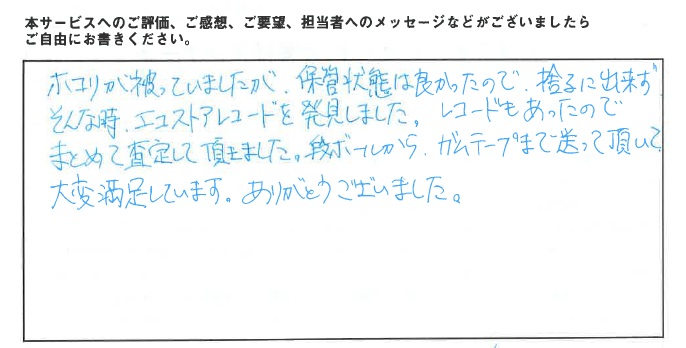 本サービスへのご評価、ご感想、ご要望、担当者へのメッセージなどがございましたら
ご自由にお書きください。
ホコリが被っていましたが、保管状態は良かったので、捨るに出来ず
そんな時、エコストアレコードを発見しました。レコードもあったので
まとめて査定して頂きました。段ボールから、ガムテープまで送って頂いて
大変満足しています。ありがとうございました。